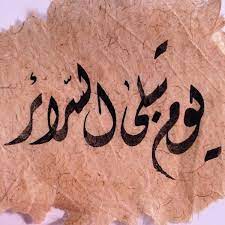 يوم تبلى السرائر